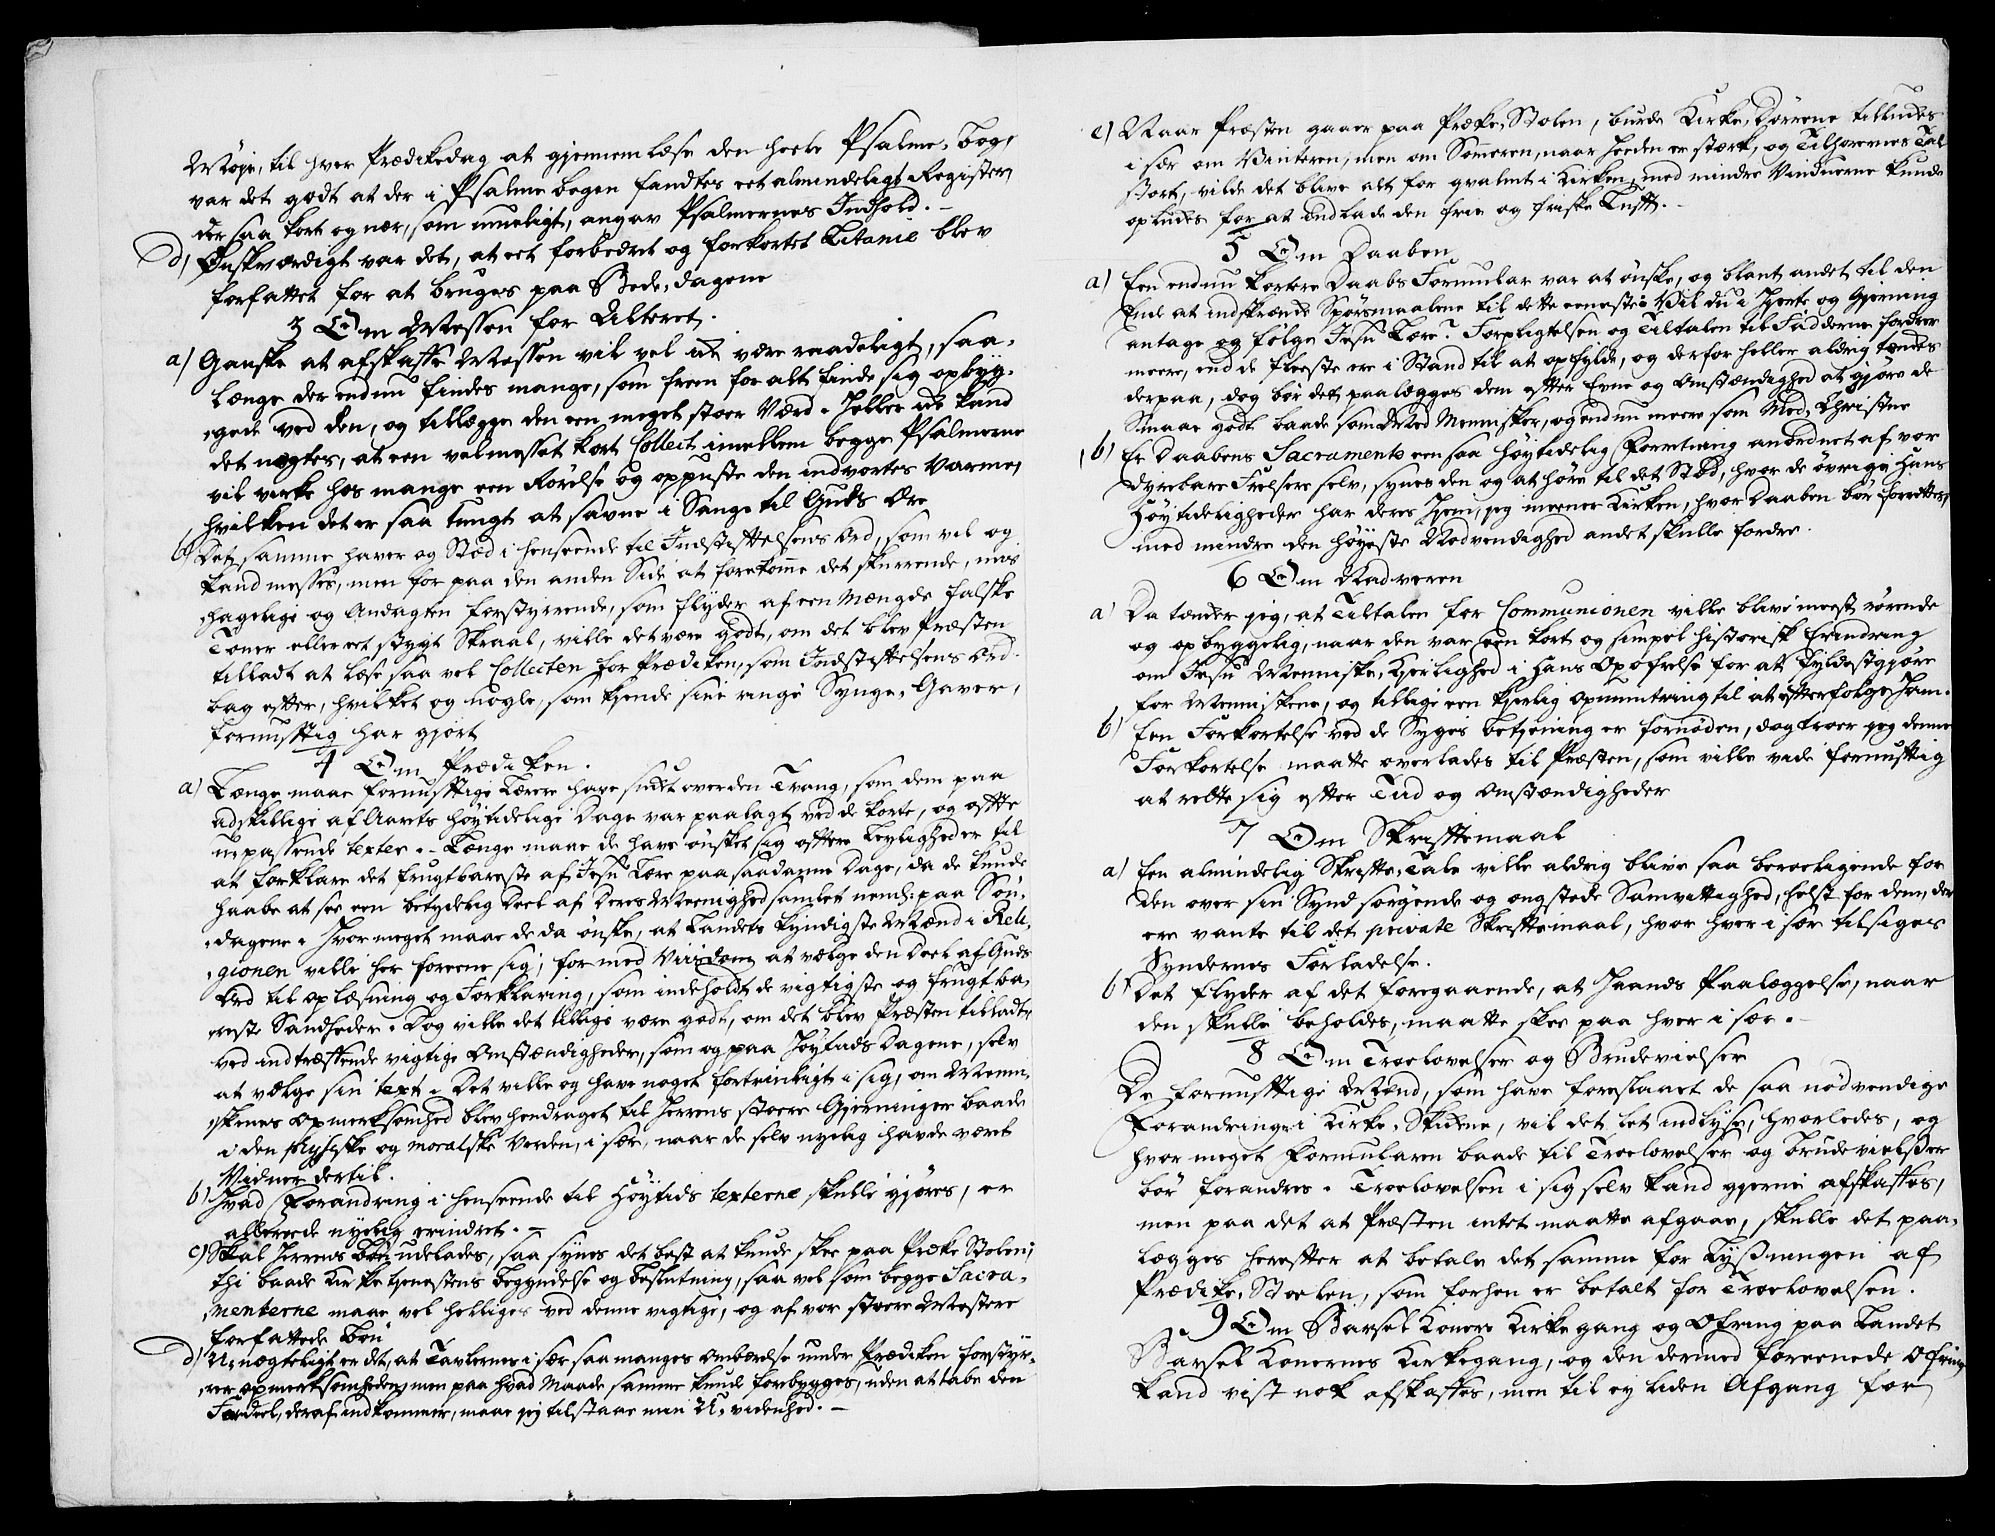 Møje, til hver Prædikedag at gjennemlæse den heele Psalme-Bog,
var det godt at der i Psalmebogen fandtes eet almindeligt Register,
der saa kort og nær, som mueligt, angav Psalmernes Indhold. –
d) Ønskværdigt var det, at eet forbedret og forkortet Litanie blev
forfattet for at bruges paa Bede-dagene
3 Om Messen for Alteret.
a) Ganske at afskaffe Messen vil vel ei være raadeligt, saa-
længe der endnu findes mange, som frem for alt finde sig opbyg-
gede ved den, og tillægge den een meget stoer Værd. Heller ei kand
det nægtes, at een velmesset kort Collect imellem begge Psalmerne
vil virke hos mange een Rørelse og oppuste den indvortes Varme,
hvilken det er saa tungt at savne i Sange til Guds Ære
b) Det samme haver og Stæd i henseende til Indstiftelsens Ord, som vel og
kand messes, men for paa den anden Side at forekomme det skurrende, mis-
hagelige og Andagten forstyrrende, som flyder af een Mængde falske
Toner eller eet stygt Skraal, ville det være godt, om det blev Præsten
tilladt at læse saa vel Collecten for Prædiken, som Indstiftelsens Ord
bag efter, hvilket og nogle, som kjende sine ringe Synge-Gaver,
fornuftig har gjort
4 Om Prædiken.
a) Længe maae fornuftige Lærere have sukket over den Trang, som dem paa
adskillige af Aarets høytidelige Dage var paalagt ved de korte, og ofte
upassende texter. – Længe maae de have ønsket sig oftere Leyligheder til
at forklare det frugtbareste af Jesu Lære paa saadanne Dage, da de kunde
haabe at see een betydelig Deel af deres Meenighed samlet nemlig paa Søn-
dagene. Hvor meget maae de da ønske, at Landets kyndigste Mænd i Reli-
gionen ville her foreene sig, for med Viisdom at vælge den Deel af Guds
Ord til Oplæsning og Forklaring, som indeholdt de vigtigste og frugtba-
reste Sandheder. Dog ville det tillige være godt, om det blev Præsten tilladt,
ved indtræffende vigtige Omstændigheder, som og paa Høytids Dagene, selv
at vælge sin text. Det ville og have noget fortrinligt i sig, om Menni-
skenes Opmerksomhed blev hendraget til Herrens stoere Gjerninger baade
i den physiske og moralske Verden, i sær, naar de selv nyelig havde været
Vidner dertil.
b) Hvad Forandring i henseende til Høytids texterne skulle gjøres, er
allerede nyelig erindret. –
c) Skal Herrens Bøn udelades, saa synes det best at kunde skee paa Præke Stolen;
thi baade Kirketjenestens begyndelse og beslutning, saa vel som begge Sacra-
menterne maae vel helliges ved denne vigtige, og af vor stoere Mestere
forfattede Bøn
d) U-nægteligt er det, at Tavlernes i sær saa manges ombærelse under Prædiken forstyr-
rer opmerksomheden, men paa hvad Maade samme kunde forbygges, uden at tabe den
Fordeel, deraf indkommer, maae jeg tilstaae min U-videnhed. –
e) Naar Præsten gaaer paa Præke-Stolen, burde Kirke-Dørrene tillukkes
i sær om Vinteren, men om Sommeren, naar Heeden er stærk, og Tilhørernes Tal
stort, vilde det blive alt for qvalmt i Kirken, med mindre Vinduerne kunde
oplukkes for at indlade den frie og friske Luft. –
5 Om Daaben
a) Een endnu kortere Daabs Formular var at ønske, og blant andet til den
Ende at indskrænke Spørsmaalene til dette eeneste: Vil du i Hjerte og Gjerning
antage og følge Jesu Lære? Forpligtelsen og Tiltalen til Fadderne fordrer
meere, end de fleeste ere i Stand til at opfylde, og derfor heller aldrig tænkes
derpaa, dog bør det paalægges dem efter Evne og Omstændighed at gjøre de
Smaae godt baade som Med Mennisker, og endnu meere som Med-Christne
b) Er Daabens Sacramente een saa høytidelig Forretning anordnet af vor
dyrebare Frelsere selv, synes den og at høre til det Stæd, hvor de øvrige hans
Høytideligheder har deres Hjem, jeg meener Kirken, hvor Daaben bør forrettes,
med mindre den høyeste Nødvendighed andet skulle fordre.
6 Om Nadveren
a) Da tænker jeg, at Tiltalen for Communionen ville blive meest rørende
og opbyggelig, naar den var een kort og simpel historisk Erindring
om Jesu Menniske-Kierlighed i hans Opofrelse for at fyldestgjøre
for Menniskene, og tillige een kjerlig Opmuntring til at efterfølge Ham.
b) Een Forkortelse ved de Syges betjening er fornøden, dog troer jeg denne
Forkortelse maatte overlades til Præsten, som ville vide fornuftig
at rette sig efter Tiid og Omstændigheder
7 Om Skriftemaal
a) Een almindelig Skrifte-Tale ville aldrig blive saa beroeligende for
den over sin Synd sørgende og ængstede Samvittighed, helst for dem, der
ere vante til det private Skriftemaal, hvor hver i sær tilsiges
Syndernes Forladelse.
b) Det flyder af det foregaaende, at Haands Paalæggelse, naar
den skulle beholdes, maatte skee paa hver i sær. –
8 Om Troelovelser og Brudevielser
De fornuftige Mænd, som have foreslaaet de saa nødvendige
Forandringer i Kirke-Skikkene, vil det let indlyse, hvorledes, og
hvor meget Formularen baade til Troelovelser og Brudevielser
bør forandres. Troelovelsen i sig selv kand gjerne afskaffes,
men paa det at Præsten intet maatte afgaae, skulle det paa-
lægges herefter at betale det samme for Lysningen af
Prædike-Stoelen, som forhen er betalt for Troelovelsen.
9 Om Barsel Koners Kirkegang og Ofring paa Landet
Barsel Konernes Kirkegang, og den dermed foreenede Ofring
kand vist nok afskaffes, men til ey liden Afgang for